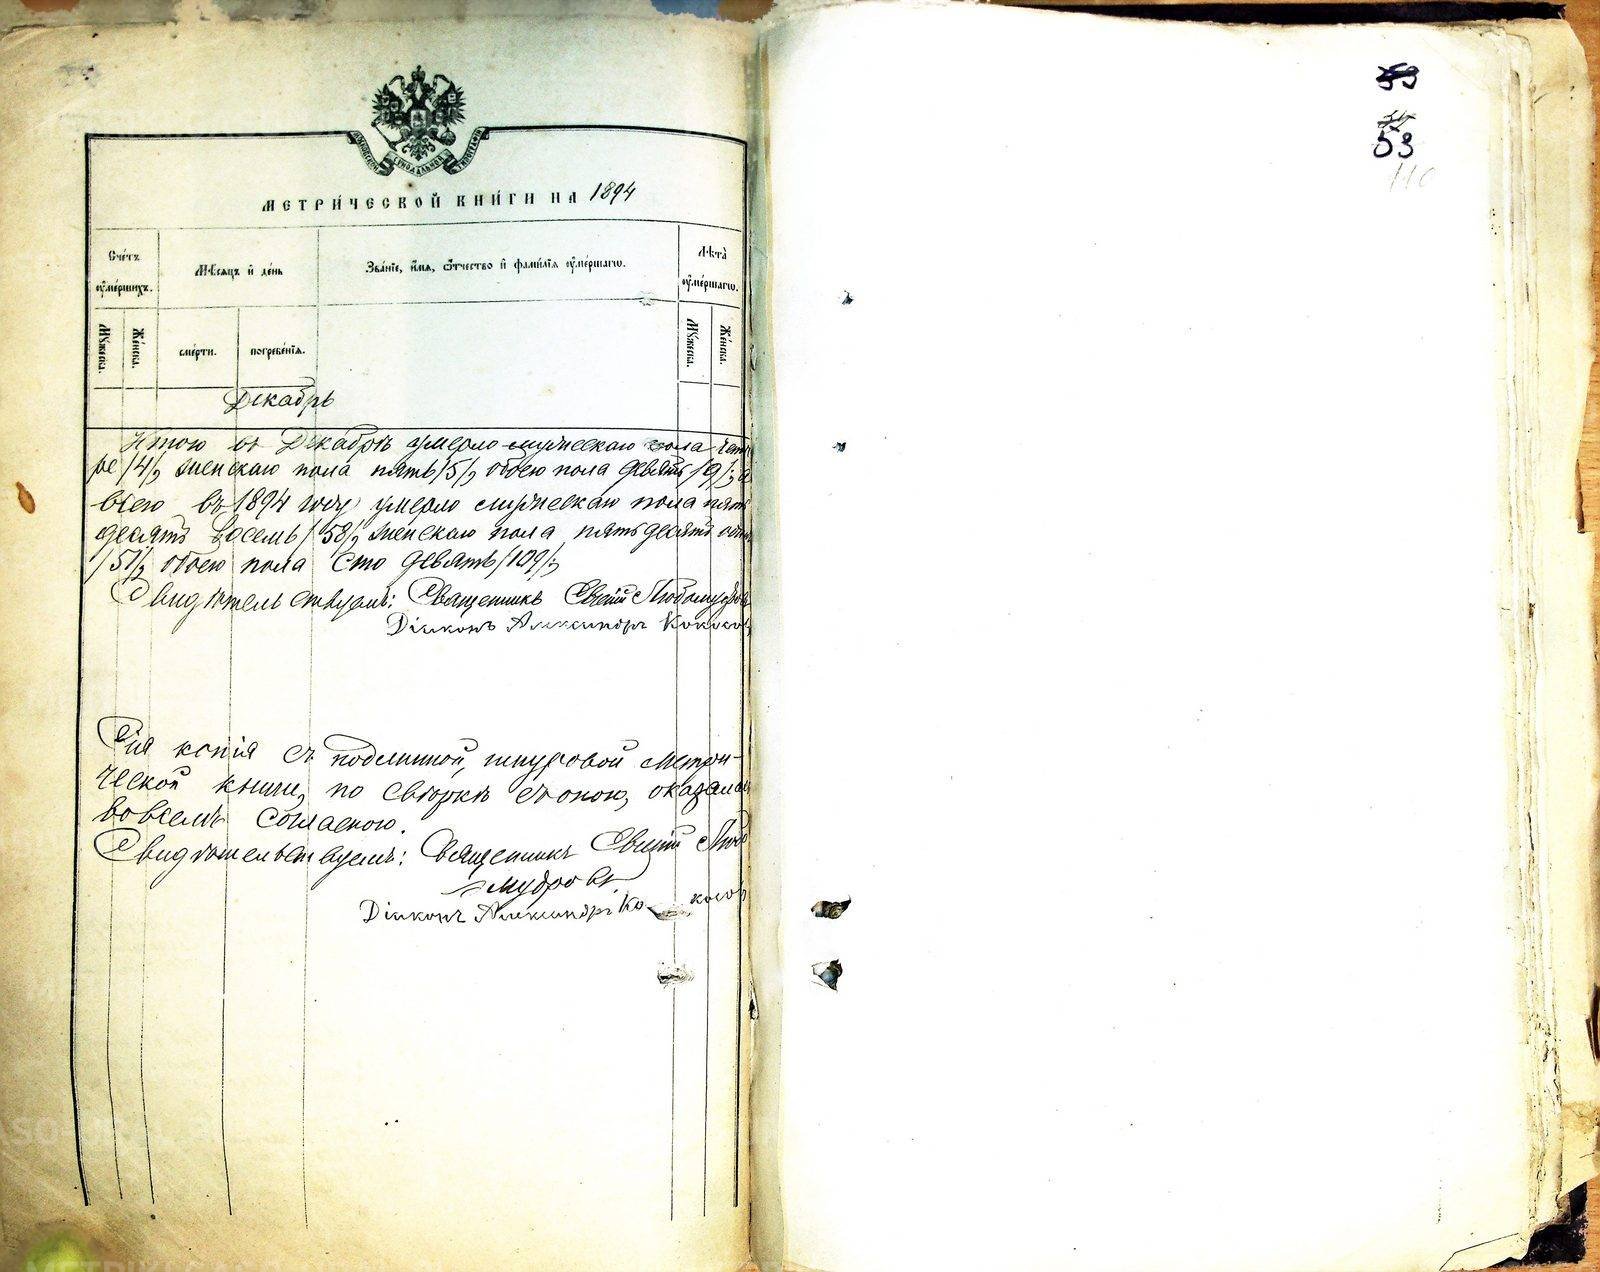 МОСКОВСКОЙ СѴНОДАЛЬНОЙ ТИПОГРАФІИ
МЕТРИ́ЧЕСКОЙ КНИ́ГИ НА 1894
Сче́тъ ѹ҆ме́ршихъ.
Мѣ́сяцъ и҆ де́нь
Зва́нїе, и҆́мѧ, ѻ҆́тчество и҆ фами́лїѧ ѹ҆ме́ршагѡ.
Лѣ́та ѹ҆ме́ршагѡ.
Мꙋ́жеска.
Же́нска.
сме́рти.
погребе́нїѧ.
Мꙋ́жеска.
Же́нска.
Декабрь
Итого въ Декабрѣ умерло мужескаго пола четы
ре /4/, женскаго пола пять /5/, обоего пола девять /9/; а
всего въ 1894 году умерло мужескаго пола пять
десятъ восемь /58/, женскаго пола пятьдесятъ один
/51/, обоего пола сто девять /109/;
Свидѣтельствуемъ: Священникъ Евгеній Любомудров
Діаконъ Александръ Кокосов
Сія копія съ подлинной, шнуровой метри-
ческой книги, по свѣркѣ съ оною, оказалас
вовсемъ согласною.
Свидѣтельствуемъ: Священникъ Евгеній Любо
мудровъ
Діаконъ Александръ Ко косов
53
53
110